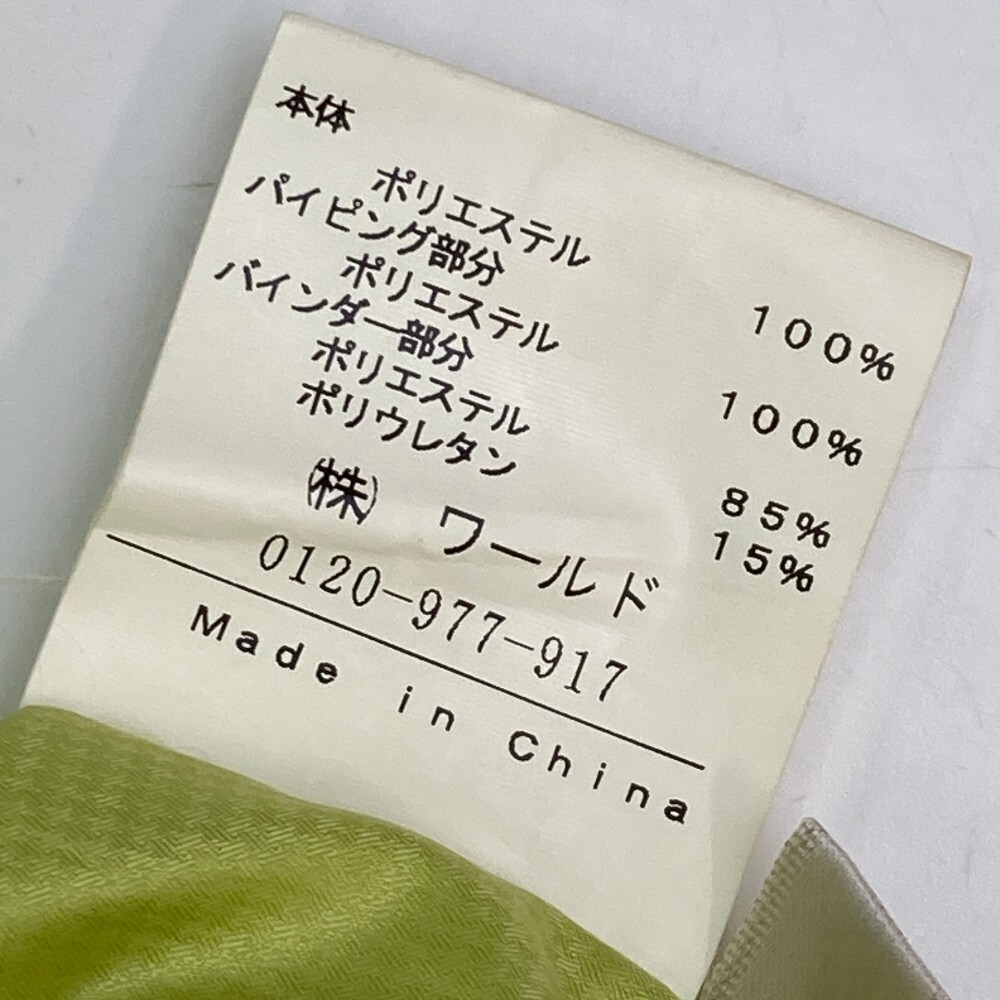 本体
ポリエステル 100%
パイピング部分
ポリエステル 100%
バインダー部分
ポリエステル 85%
ポリウレタン 15%
㈱ ワールド
0120-977-917
Made in China